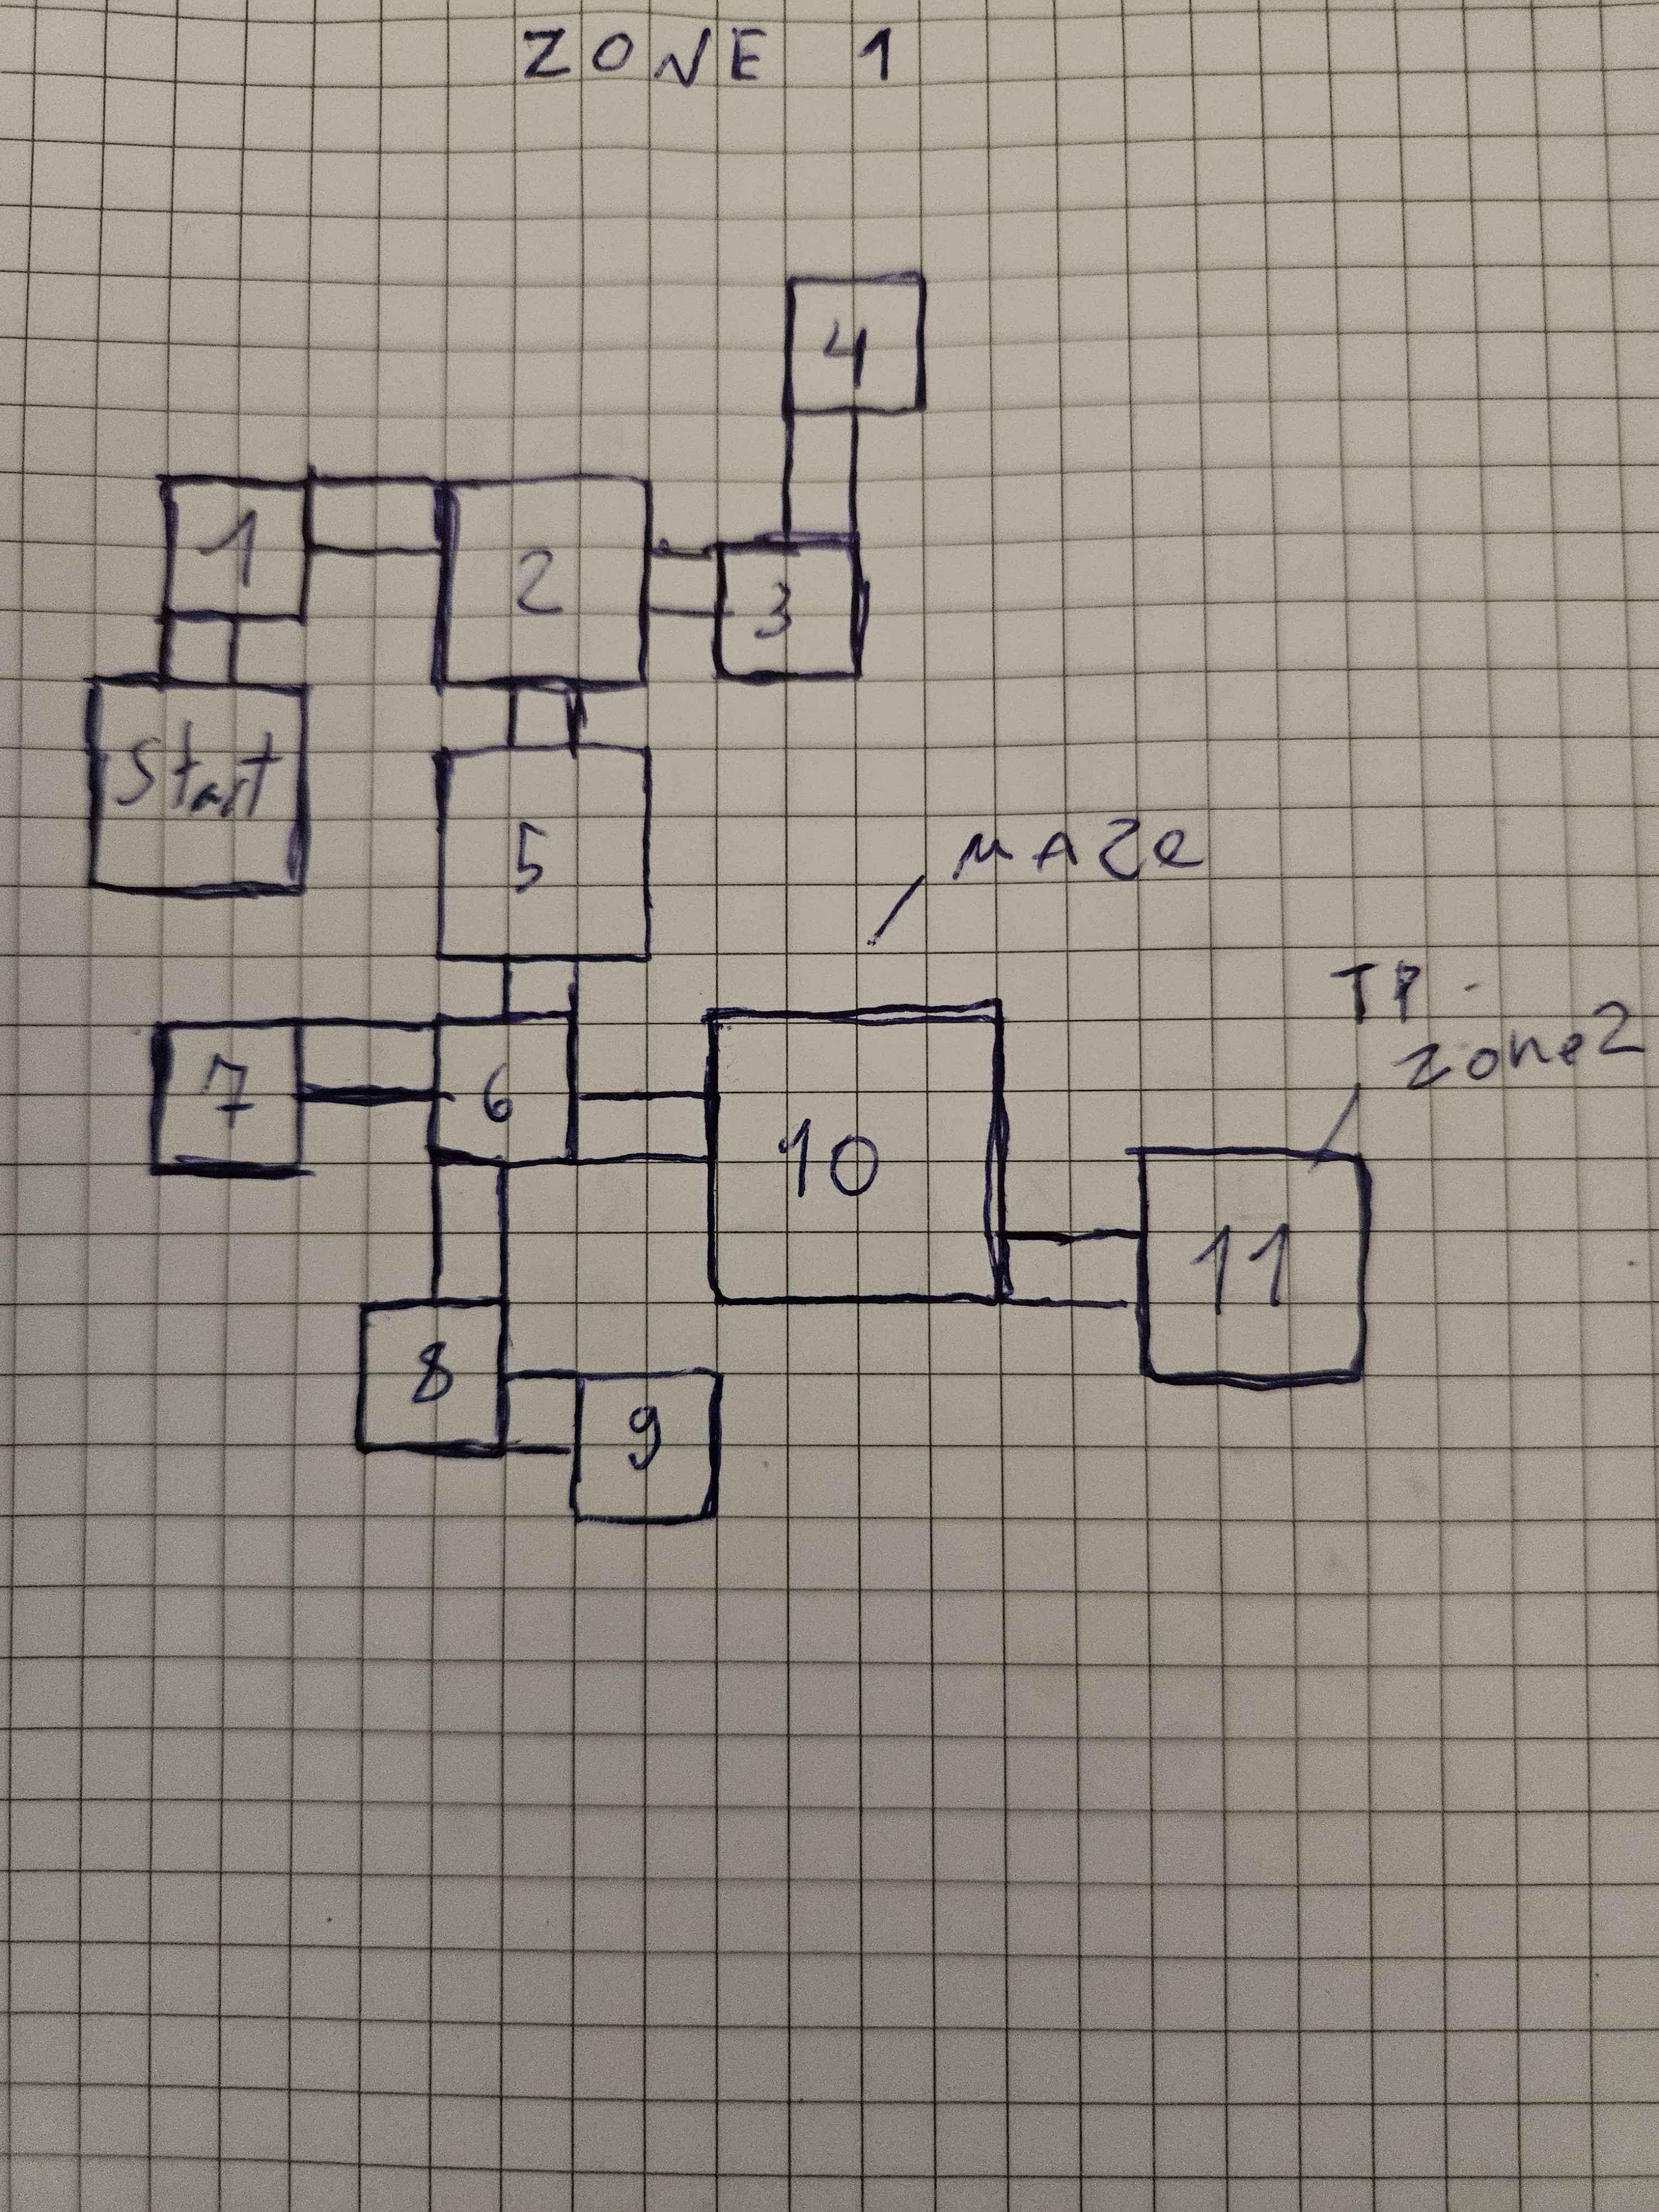 ZONE 1
4
1
2
3
Start
5
MAZe
TP
zone2
7
6
10
11
8
9